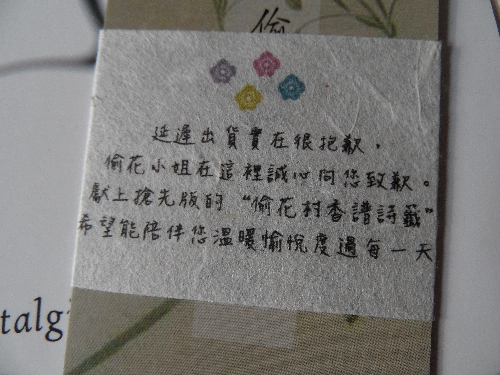 偷
延遲出貨實在很抱歉，
偷花小姐在這裡誠心向您致歉。
獻上搶先版的“偷花村香譜詩籤”
希望能陪伴您溫暖愉悅度過每一天
talg